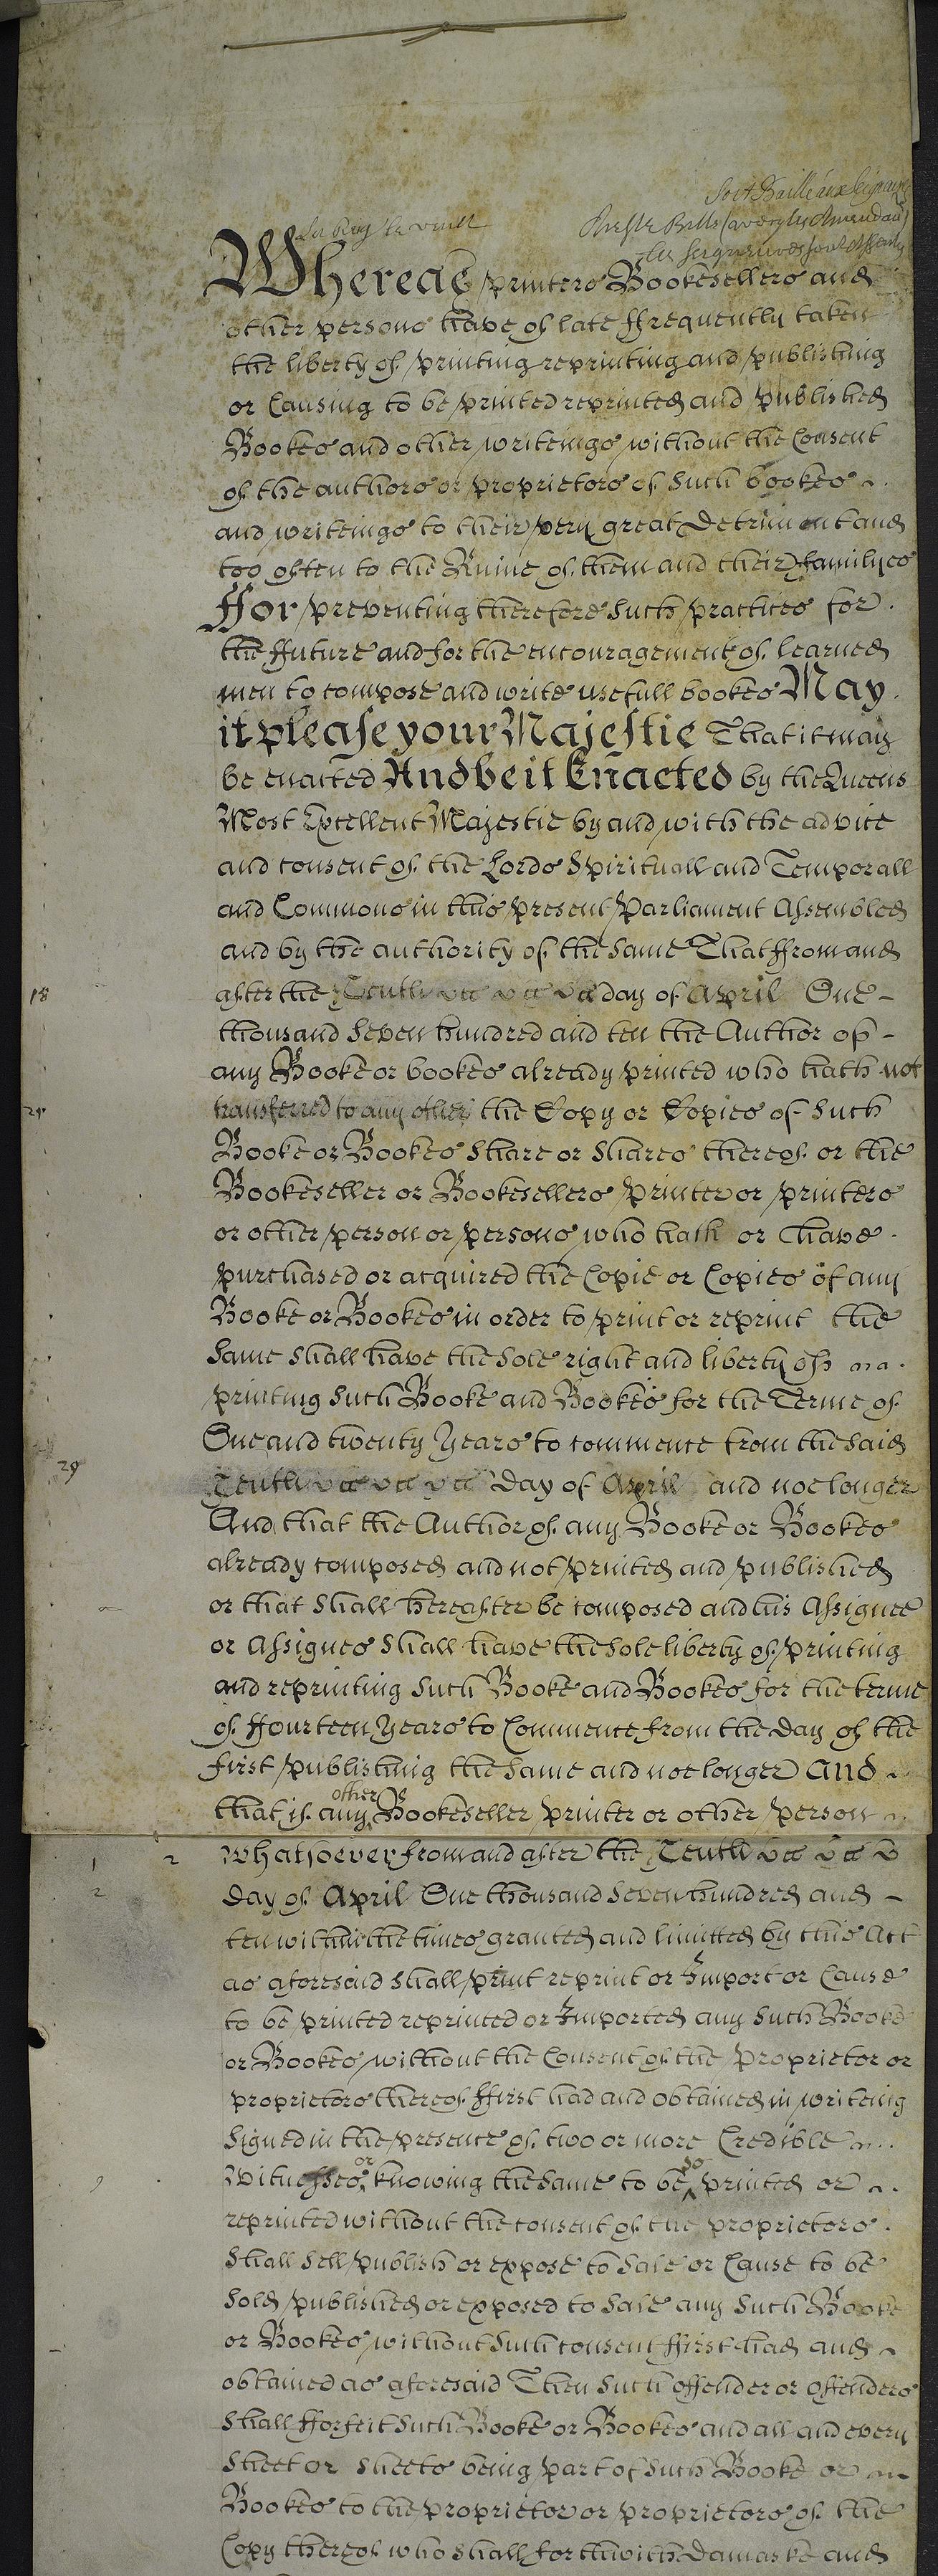 Soit Baillé aux Seigneurs
Le Roy le veult
Whereas printers Booksellers and
other persons have of late ffrequently taken
the liberty of printing reprinting and publishing
or Causing to be printed reprinted and published
Bookes and other writeings without the Consent
of the authors or proprietors of Such bookes
and writeings to their very great Detriment and
too often to the Ruine of them and their familyes
ffor preventing therefore Such practices for
the ffuture and for the encouragement of learned
men to compose and write usefull bookes May
it please your Majestie That it may
be enacted And be it Enacted by the Queens
Most Excellent Majestie by and with the advice
and consent of the Lords Spirituall and Temporall
and Commons in this present Parliament Assembled
and by the authority of the same That ffrom and
18 after the Tenth day of April One
thousand Seven hundred and ten the Author of
any Booke or bookes already printed who hath not
transferred to any other the Copy or Copies of Such
Booke or Bookes Share or Shares thereof or the
Bookeseller or Booksellers printer or printers
or other person or persons who hath or have
purchased or acquired the Copie or Copies of any
Booke or Bookes in order to print or reprint the
Same Shall have the Sole right and liberty of
printing Such Booke and Bookes for the Terme of
One and twenty Years to commence from the Said
29 Tenth Day of April and noe longer
And that the Author of any Booke or Bookes
already composed and not printed and published
or that Shall hereafter be composed and his Assignee
or Assignes Shall have the Sole liberty of printing
and reprinting Such Booke and Bookes for the terme
of ffourteen Years to Commence from the Day of the
first publishing the Same and noe longer And
that if any other Bookeseller printer or other person
1 2 whatsoever from and after the Tenth
2 Day of April One thousand Seven hundred and
ten within the times granted and limitted by this Act
as aforesaid Shall print reprint or Import or Cause
to be printed reprinted or Imported any Such Booke
or Bookes without the Consent of the Proprietor or
proprietors thereof ffirst had and obtained in writeing
Signed in the presence of two or more Credible
9 Witnesses or knowing the Same to be so printed or
reprinted without the consent of the proprietors
Shall Sell publish or expose to Sale or Cause to be
Sold published or exposed to Sale any Such Booke
or Bookes without Such consent ffirst had and
obtained as aforesaid Then Such offender or offenders
Shall fforfeit Such Booke or Bookes and all and every
Sheet or Sheets being part of Such Booke or
Bookes to the proprietor or proprietors of the
Copy thereof who Shall forthwith Damaske and